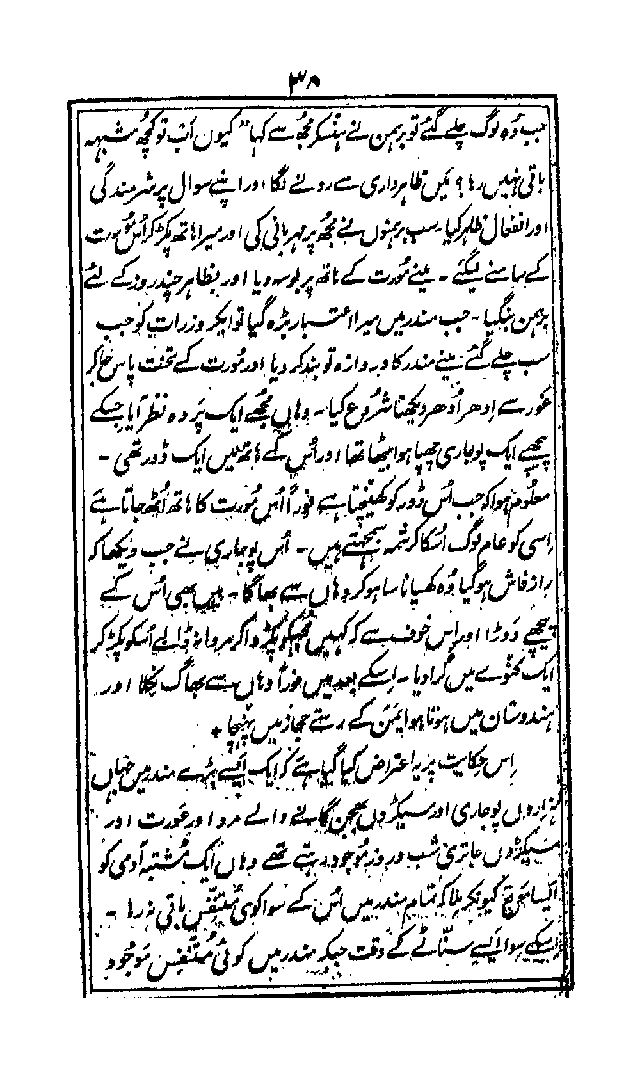 ۳۸
جب وُہ لوگ چلے گئے تو برہمن نے ہنسکر مجھ سے کہا "کیوں اَب تو کچھ شبہہ
باقی نہیں رہا؟ میں ظاہرداری سے رونے لگا اور اپنے سوال پر شرمندگی
اور انفعال ظاہر کیا۔ سب برہمنوں نے مجھ پر مہربانی کی اور میرا ہاتھ پکڑ کر اُس مُورت
کے سامنے لیگئے۔ مینے مُورت کے ہاتھ پر بوسہ دیا اور بظاہر چند روز کے لئے
برہمن بنگیا۔ جب مندر میں میرا اعتبار بڑہ گیا تو ایکروز رات کو جب
سب چلے گئے مینے مندر کا دروازہ تو بند کر دیا اور مُورت کے تخت پاس جاکر
غور سے اِدھر اُدھر دیکھنا شروع کیا۔ وہاں مجھے ایک پَردہ نظر آیا جسکے
پیچھے ایک پوجاری چھپا ہوا بیٹھا تھا اور اُس کے ہاتھ میں ایک ڈور تھی۔
معلوم ہوا کہ جب اُس ڈور کو کھینچتا ہے فوراً اُس مُورت کا ہاتھ اُٹھ جاتا ہے
اِسی کو عام لوگ اُسکا کرشمہ سمجھتے ہیں۔ اُس پوجاری نے جب دیکھا کہ
راز فاش ہو گیا وُہ کھسیانا سا ہو کر وہاں سے بھاگا۔ میں بھی اُس کے
پیچھے دَوڑا اور اِس خوف سے کہ کہیں مجھکو پکڑوا کر مروا نہ ڈالے اُسکو پکڑ کر
ایک کنوئے میں گرا دیا۔ اِسکے بعد میں فوراً وہاں سے بھاگ نکلا اور
ہندوستان میں ہوتا ہوا یمَن کے رستے حجاز میں پہنچا +
اِس حکایت پر یہ اعتراض کیا گیا ہے کہ ایک ایسے بڑے مندر میں جہاں
ہزاروں پوجاری اور سیکڑوں بھجن گانے والے مرد اور عَورت اور
سیکڑوں جاتری شب و روز مَوجود رہتے تھے وہاں ایک مُشتبہ آدمی کو
ایسا موقع کیونکر ملا کہ تمام مندر میں اُس کے سوا کوئی مُتنفّس باقی نہ رہا۔
اِسکے سوا ایسے سنّاٹے کے وقت جبکہ مندر میں کوئی مُتنفّس مَوجود